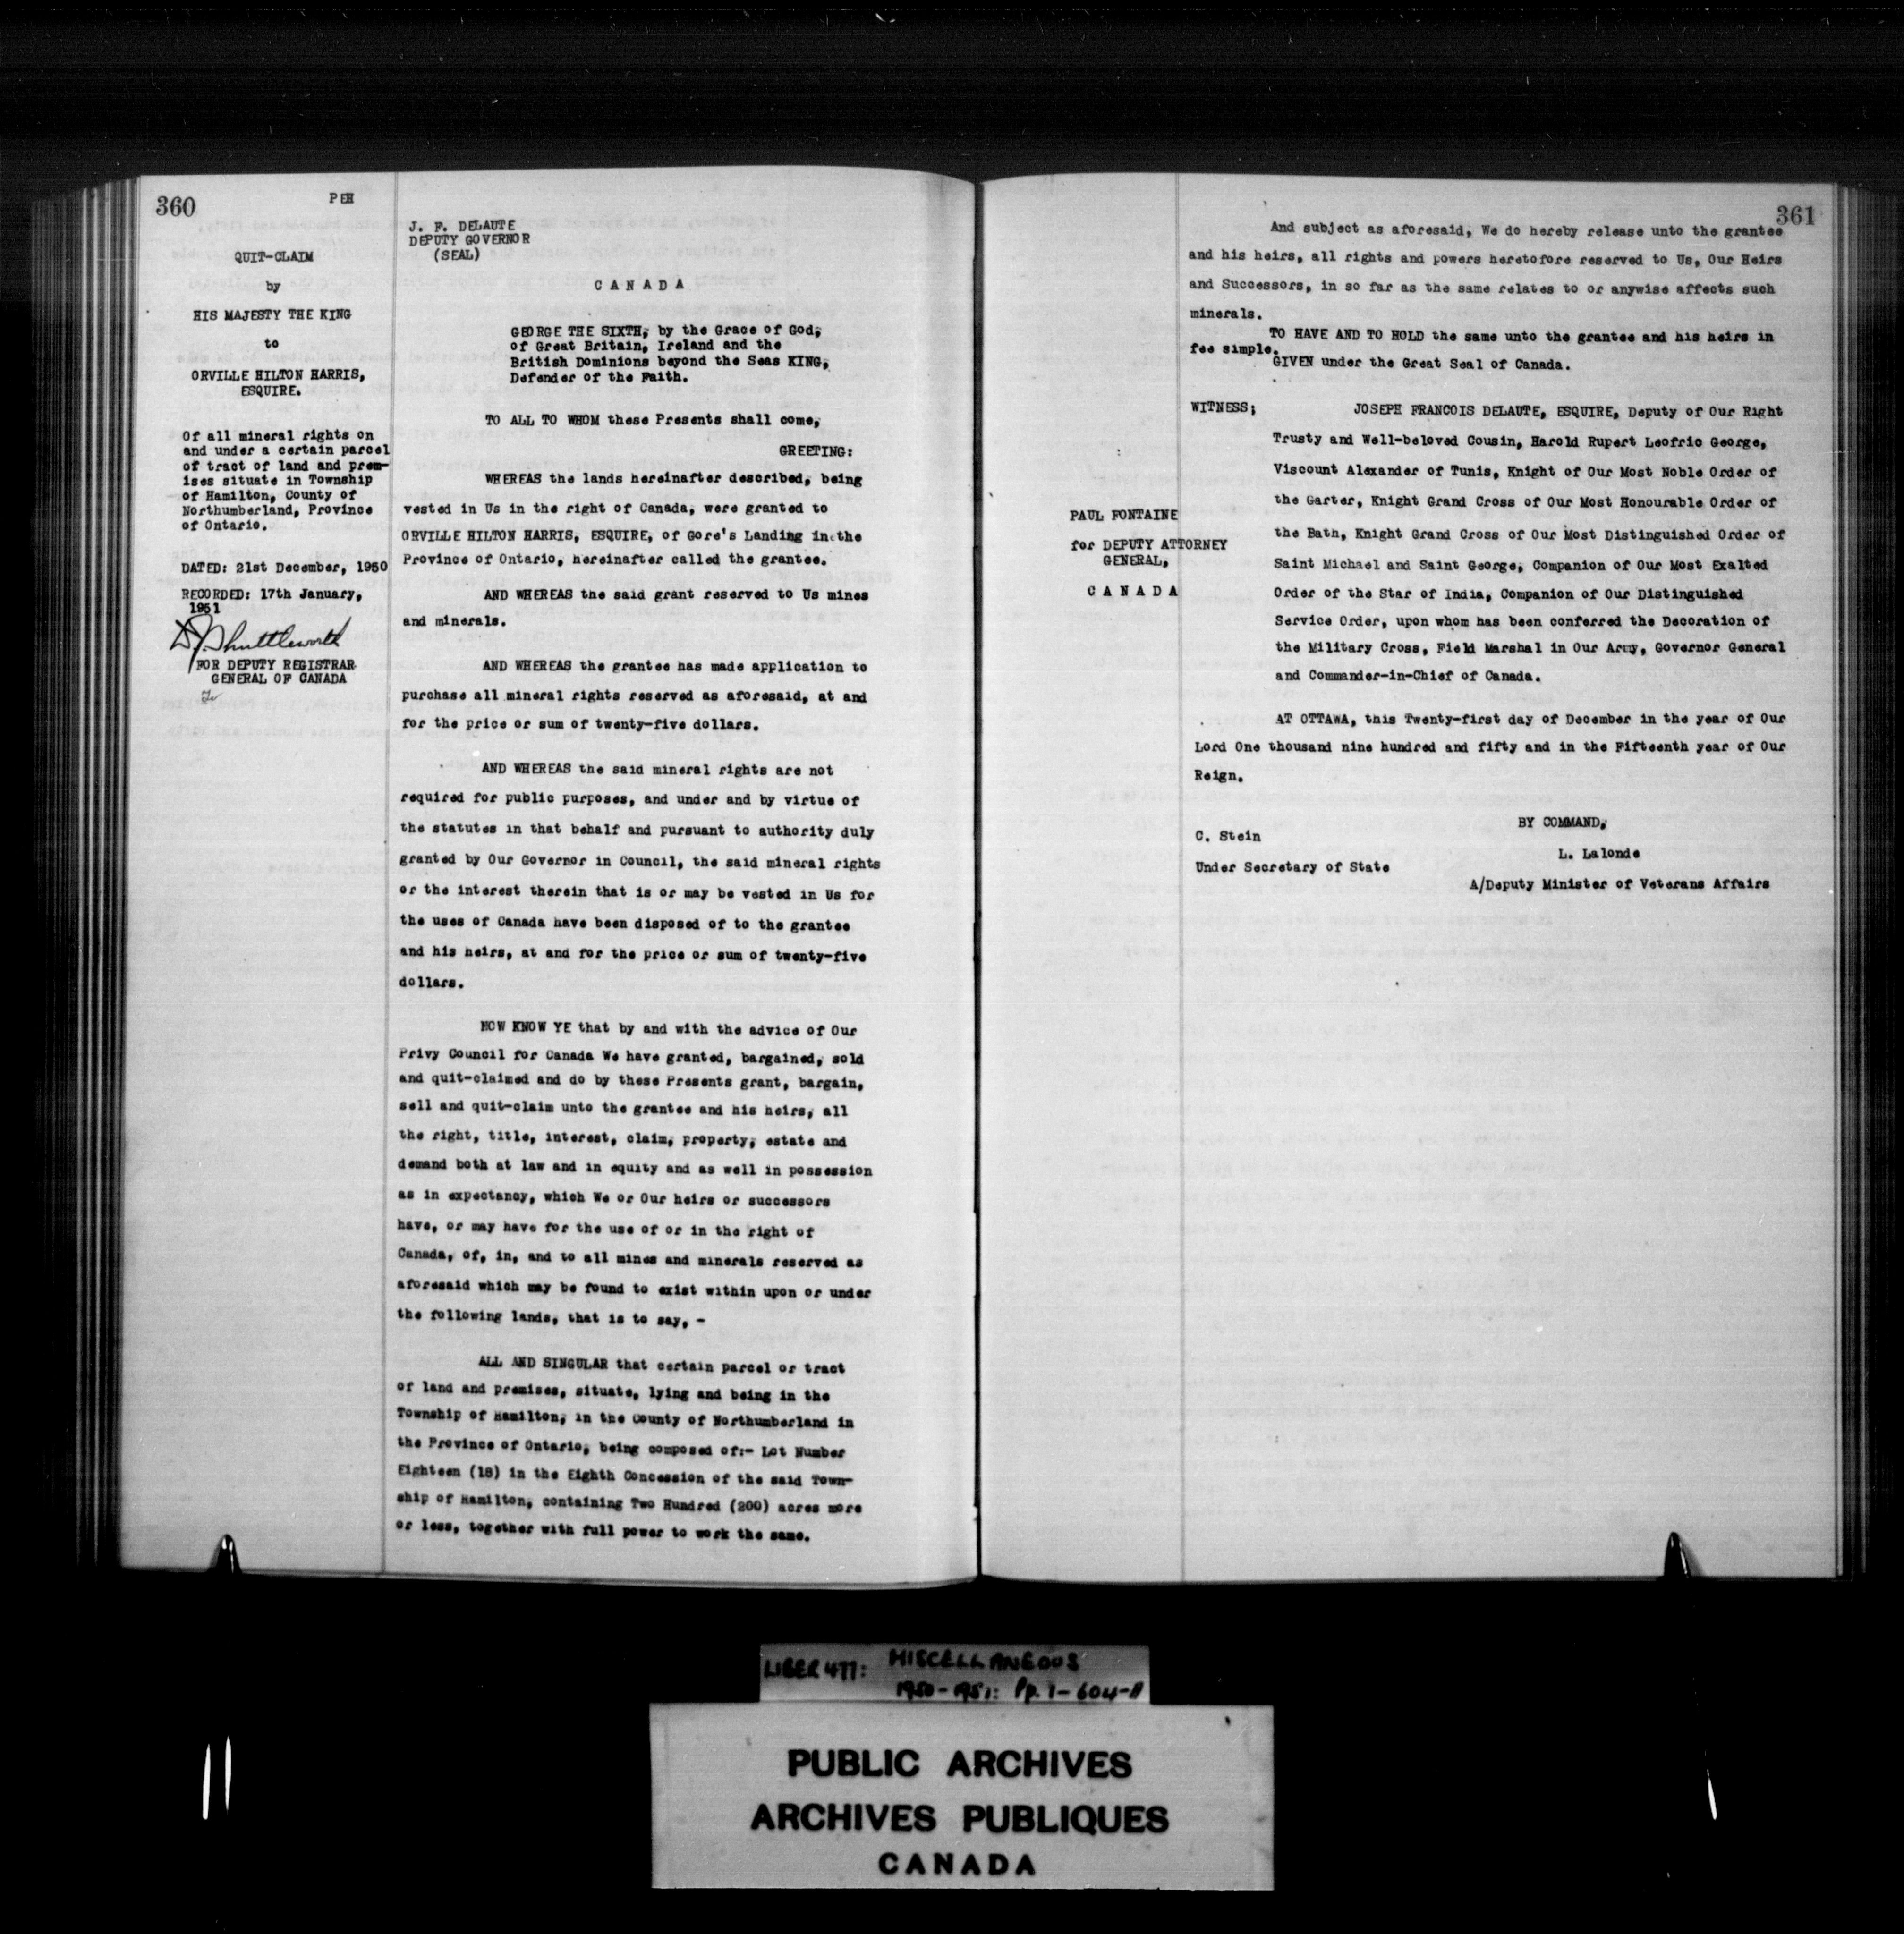 360
PEH
QUIT-CLAIM
by
HIS MAJESTY THE KING
to
ORVILLE HILTON HARRIS,
ESQUIRE.
Of all mineral rights on
and under a certain parcel
of tract of land and prem-
ises situate in Township
of Hamilton, County of
Northumberland, Province
of Ontario.
DATED: 21st December, 1950
RECORDED: 17th January,
1951
Shuttleworth
FOR DEPUTY REGISTRAR
GENERAL OF CANADA
J. F. DELAUTE
DEPUTY GOVERNOR
(SEAL)
CANADA
GEORGE THE SIXTH, by the Grace of God,
of Great Britain, Ireland and the
British Dominions beyond the Seas KING,
Defender of the Faith.
TO ALL TO WHOM these Presents shall come,
GREETING:
WHEREAS the lands hereinafter described, being
vested in Us in the right of Canada, were granted to
ORVILLE HILTON HARRIS, ESQUIRE, of Gore's Landing in the
Province of Ontario, hereinafter called the grantee.
AND WHEREAS the said grant reserved to Us mines
and minerals.
AND WHEREAS the grantee has made application to
purchase all mineral rights reserved as aforesaid, at and
for the price or sum of twenty-five dollars.
AND WHEREAS the said mineral rights are not
required for public purposes, and under and by virtue of
the statutes in that behalf and pursuant to authority duly
granted by Our Governor in Council, the said mineral rights
or the interest therein that is or may be vested in Us for
the uses of Canada have been disposed of to the grantee
and his heirs, at and for the price or sum of twenty-five
dollars.
NOW KNOW YE that by and with the advice of Our
Privy Council for Canada We have granted, bargained, sold
and quit-claimed and do by these Presents grant, bargain,
sell and quit-claim unto the grantee and his heirs, all
the right, title, interest, claim, property, estate and
demand both at law and in equity and as well in possession
as in expectancy, which We or Our heirs or successors
have, or may have for the use of or in the right of
Canada, of, in, and to all mines and minerals reserved as
aforesaid which may be found to exist within upon or under
the following lands, that is to say, -
ALL AND SINGULAR that certain parcel or tract
of land and premises, situate, lying and being in the
Township of Hamilton, in the County of Northumberland in
the Province of Ontario, being composed of:- Lot Number
Eighteen (18) in the Eighth Concession of the said Town-
ship of Hamilton, containing Two Hundred (200) acres more
or less, together with full power to work the same.
361
And subject as aforesaid, We do hereby release unto the grantee
and his heirs, all rights and powers heretofore reserved to Us, Our Heirs
and Successors, in so far as the same relates to or anywise affects such
minerals.
TO HAVE AND TO HOLD the same unto the grantee and his heirs in
fee simple.
GIVEN under the Great Seal of Canada.
PAUL FONTAINE
for DEPUTY ATTORNEY
GENERAL,
CANADA
WITNESS; JOSEPH FRANCOIS DELAUTE, ESQUIRE, Deputy of Our Right
Trusty and Well-beloved Cousin, Harold Rupert Leofric George,
Viscount Alexander of Tunis, Knight of Our Most Noble Order of
the Garter, Knight Grand Cross of Our Most Honourable Order of
the Bath, Knight Grand Cross of Our Most Distinguished Order of
Saint Michael and Saint George, Companion of Our Most Exalted
Order of the Star of India, Companion of Our Distinguished
Service Order, upon whom has been conferred the Decoration of
the Military Cross, Field Marshal in Our Army, Governor General
and Commander-in-Chief of Canada.
AT OTTAWA, this Twenty-first day of December in the year of Our
Lord One thousand nine hundred and fifty and in the Fifteenth year of Our
Reign.
BY COMMAND,
C. Stein
Under Secretary of State
L. Lalonde
A/Deputy Minister of Veterans Affairs
LIBER 477: MISCELLANEOUS
1950-1951: Pp. 1-604-A
PUBLIC ARCHIVES
ARCHIVES PUBLIQUES
CANADA